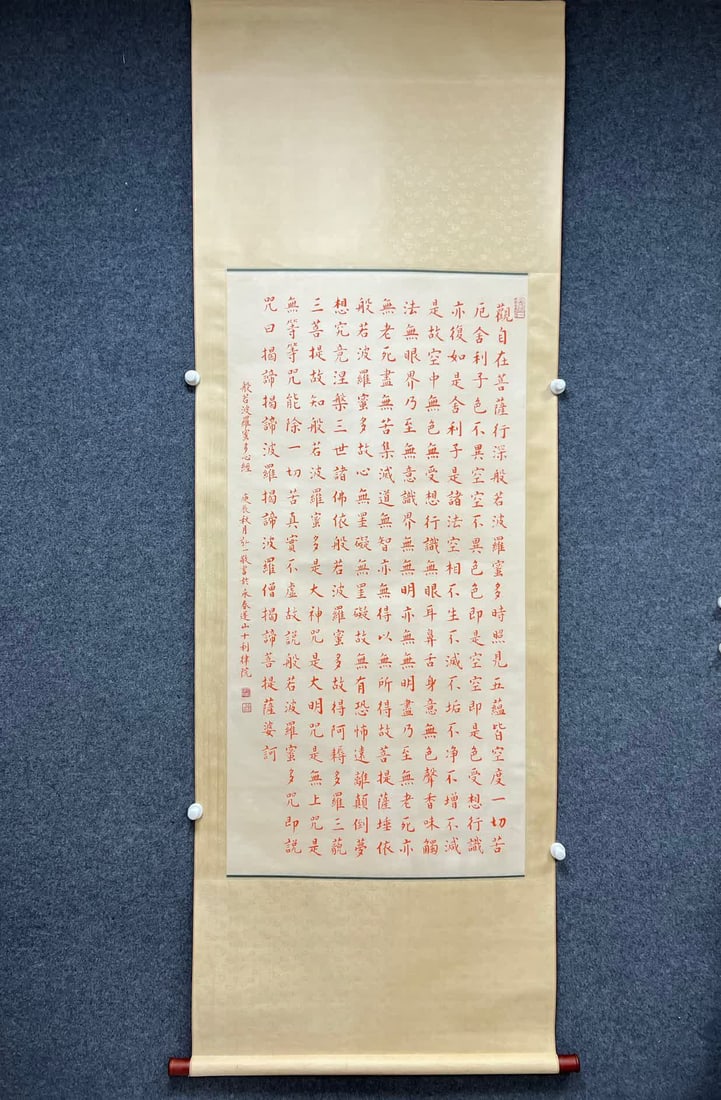 觀自在菩薩行深般若波羅蜜多時照見五蘊皆空度一切苦
厄舍利子色不異空空不異色色即是空空即是色受想行識
亦復如是舍利子是諸法空相不生不滅不垢不淨不增不減
是故空中無色無受想行識無眼耳鼻舌身意無色聲香味觸
法無眼界乃至無意識界無無明亦無無明盡乃至無老死亦
無老死盡無苦集滅道無智亦無得以無所得故菩提薩埵依
般若波羅蜜多故心無罣礙無罣礙故無有恐怖遠離顛倒夢
想究竟涅槃三世諸佛依般若波羅蜜多故得阿耨多羅三藐
三菩提故知般若波羅蜜多是大神咒是大明咒是無上咒是
無等等咒能除一切苦真實不虛故說般若波羅蜜多咒即説
咒曰揭諦揭諦波羅揭諦波羅僧揭諦菩提薩婆訶
般若波羅蜜多心經 庚辰秋月弘一敬書於永春蓬山十利律院